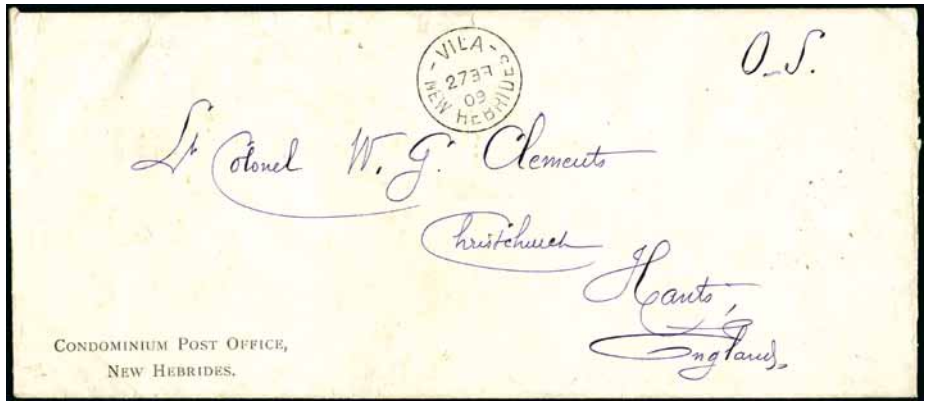 O.S.
VILA
09
NEW HEBRIDES
Lt Colonel W. G. Clements
Christchurch
Hants,
England.
CONDOMINIUM POST OFFICE,
NEW HEBRIDES.